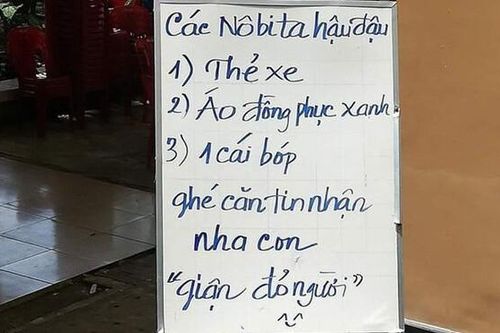 Các Nôbita hậu đậu
1) Thẻ xe
2) Áo đồng phục xanh
3) 1 cái bóp
ghé căn tin nhận
nha con
"giận đỏ người"
^_^